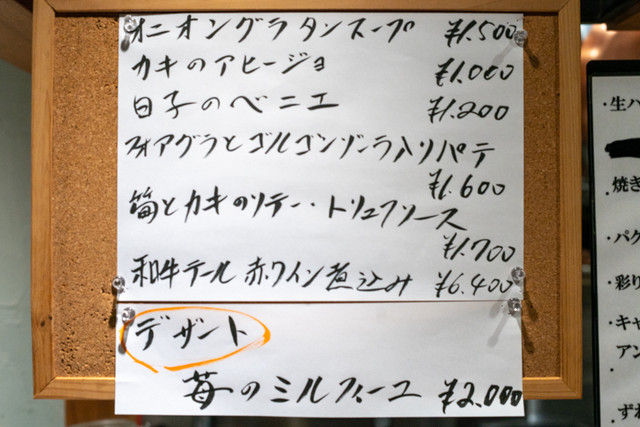 オニオングラタンスープ ¥1.500
カキのアヒージョ ¥1.000
白子のベニエ ¥1.200
フォアグラとゴルゴンゾーラ入りパテ
¥1.600
筍とカキのソテー・トリュフソース
¥1.700
和牛テール赤ワイン煮込み ¥6.400
デザート
苺のミルフィーユ ¥2.000
・生ハ
焼き
・パク
・彩り
・キャ
アン
・ずわ